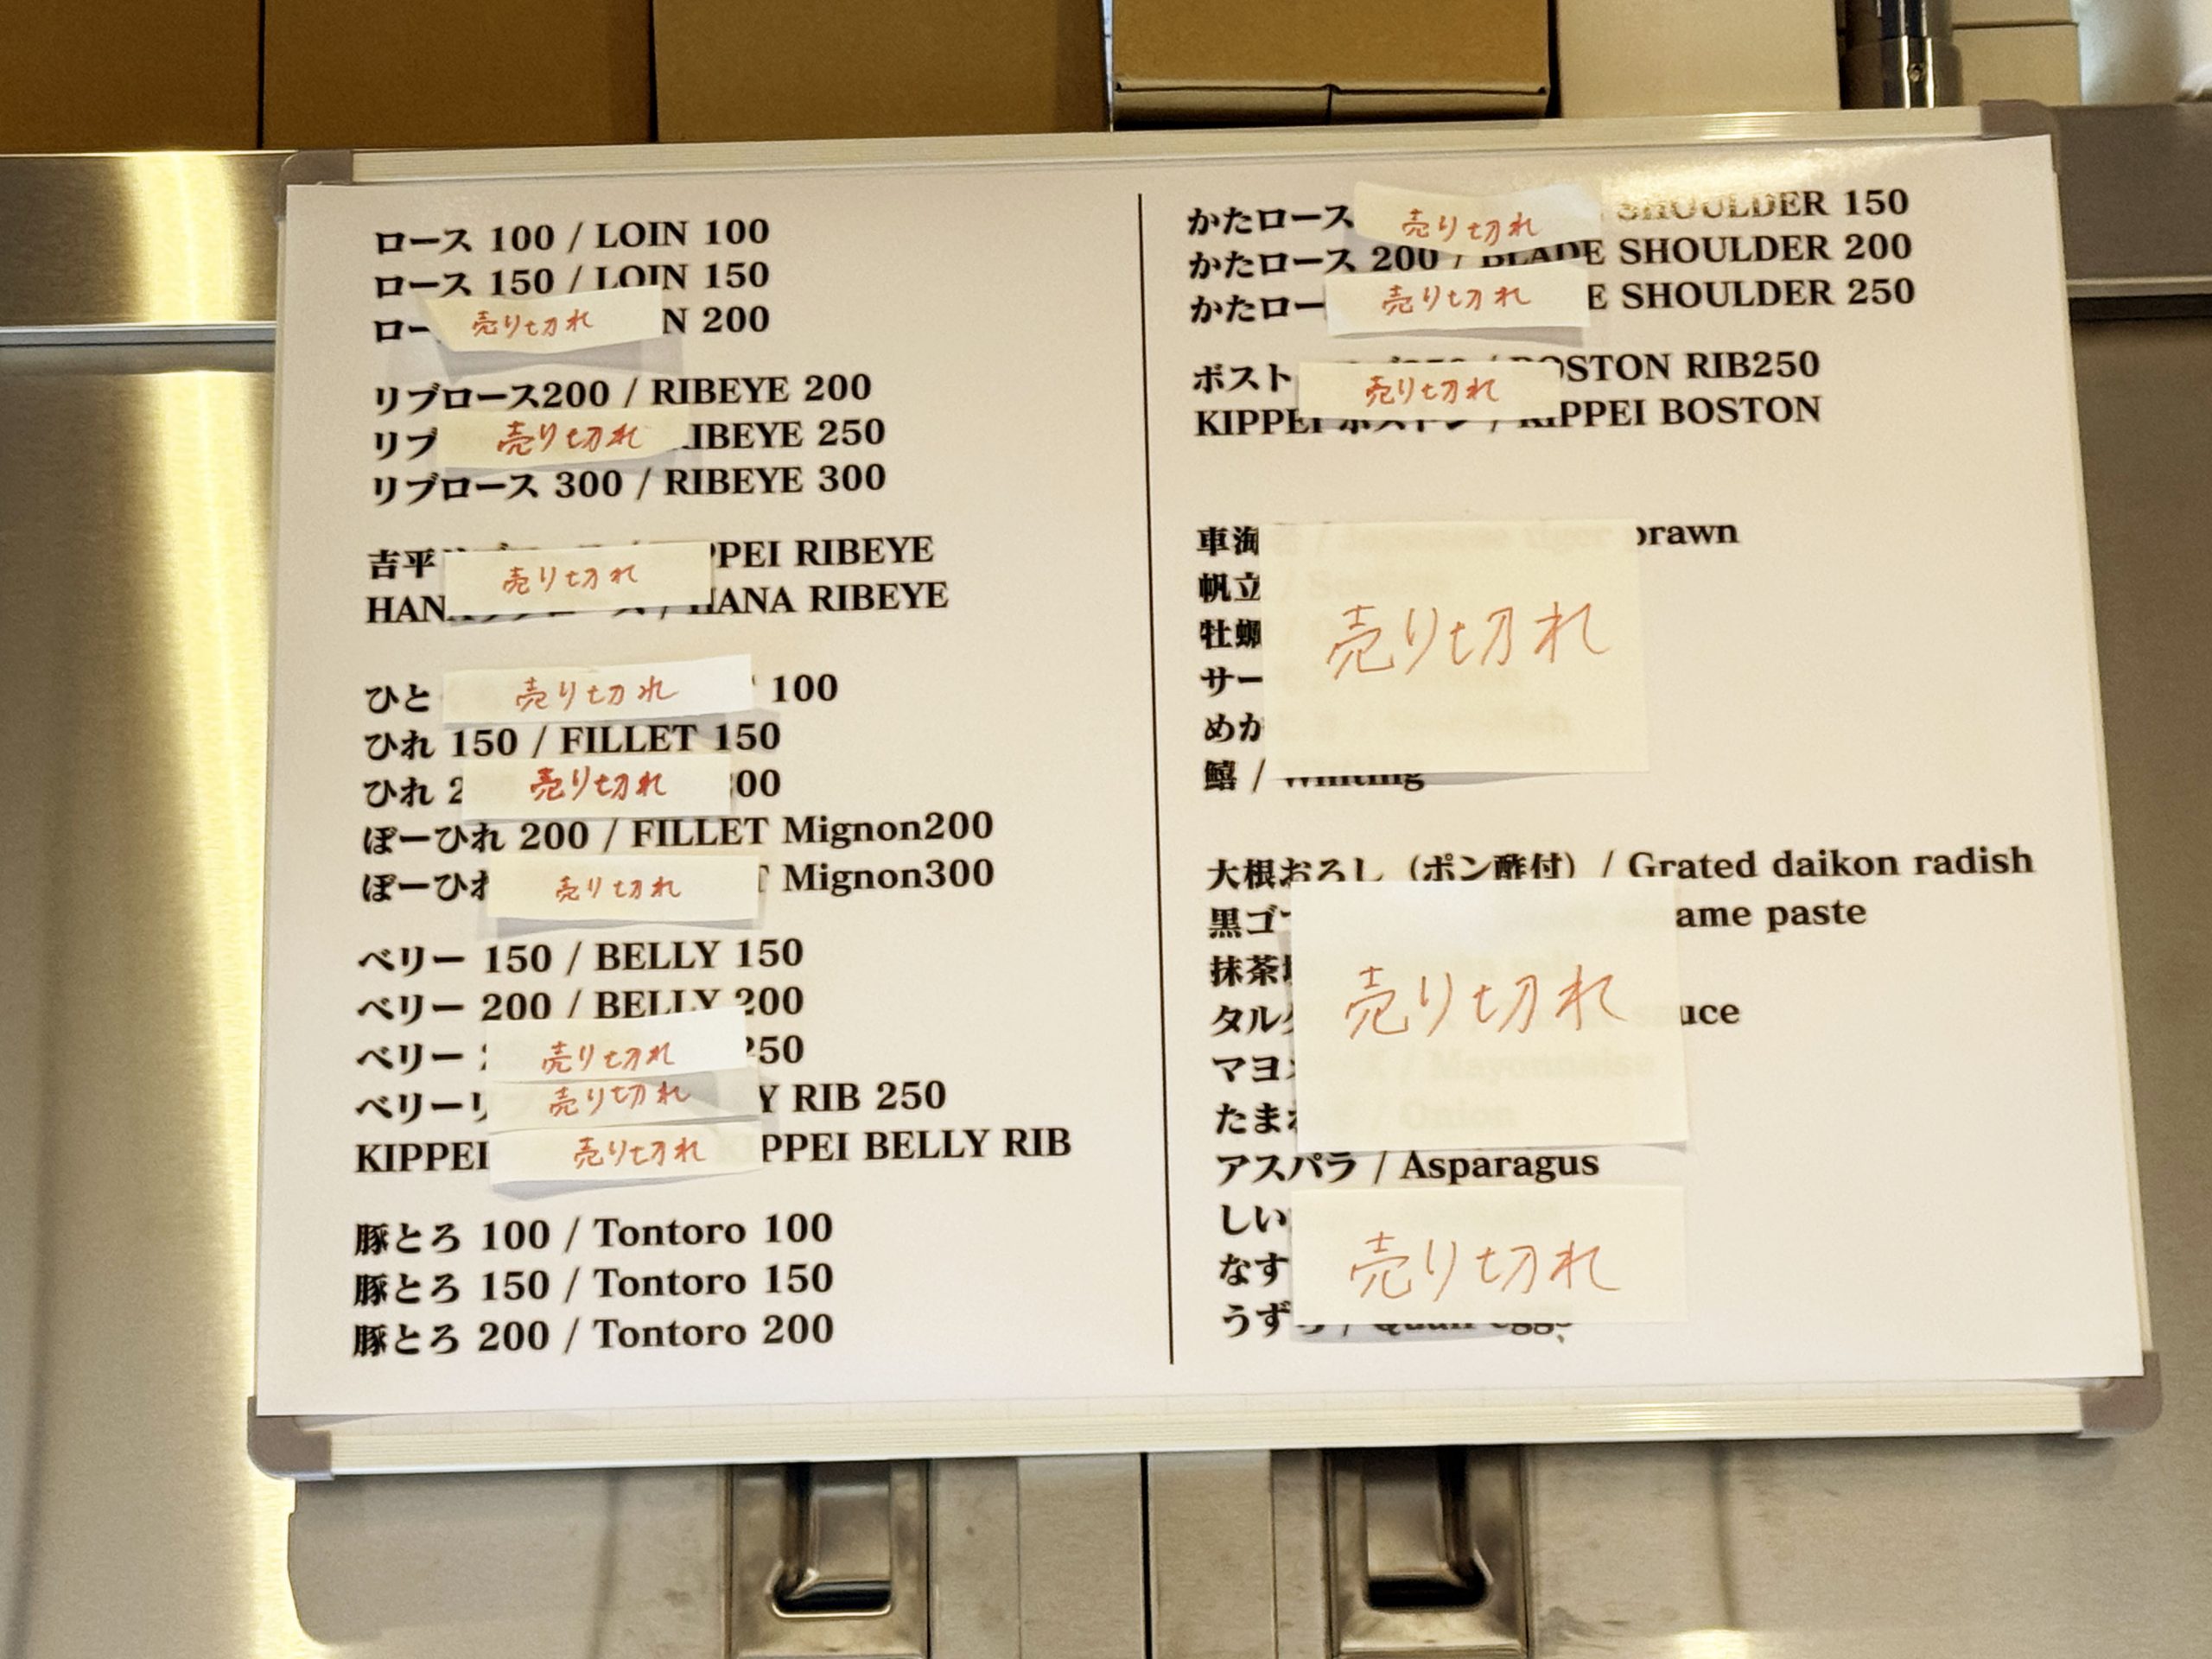 ロース 100 / LOIN 100
ロース 150 / LOIN 150
ロー 売り切れ N 200
リブロース200 / RIBEYE 200
リブ 売り切れ IBEYE 250
リブロース 300 / RIBEYE 300
吉平 PPEI RIBEYE
売り切れ
HANA / HANA RIBEYE
ひと 売り切れ 100
ひれ 150 / FILLET 150
ひれ 2 売り切れ 00
ぽーひれ 200 / FILLET Mignon200
ぽーひれ 売り切れ T Mignon300
ベリー 150 / BELLY 150
ベリー 200 / BELLY 200
ベリー 売り切れ 250
ベリーリ 売り切れ Y RIB 250
KIPPEI 売り切れ PPEI BELLY RIB
豚とろ 100 / Tontoro 100
豚とろ 150 / Tontoro 150
豚とろ 200 / Tontoro 200
かたロース 売り切れ SHOULDER 150
かたロース 200 / BLADE SHOULDER 200
かたロー 売り切れ E SHOULDER 250
ボスト / BOSTON RIB250
売り切れ
KIPPEI ボストン / KIPPEI BOSTON
車海 / Japanese tiger prawn
帆立
牡蠣
売り切れ
サー
めか
鱚 / Whiting
大根おろし（ポン酢付）/ Grated daikon radish
黒ゴマ ame paste
抹茶
タル 売り切れ uce
マヨ / Mayonnaise
たまね / Onion
アスパラ / Asparagus
しい
なす 売り切れ
うずら / Quail eggs